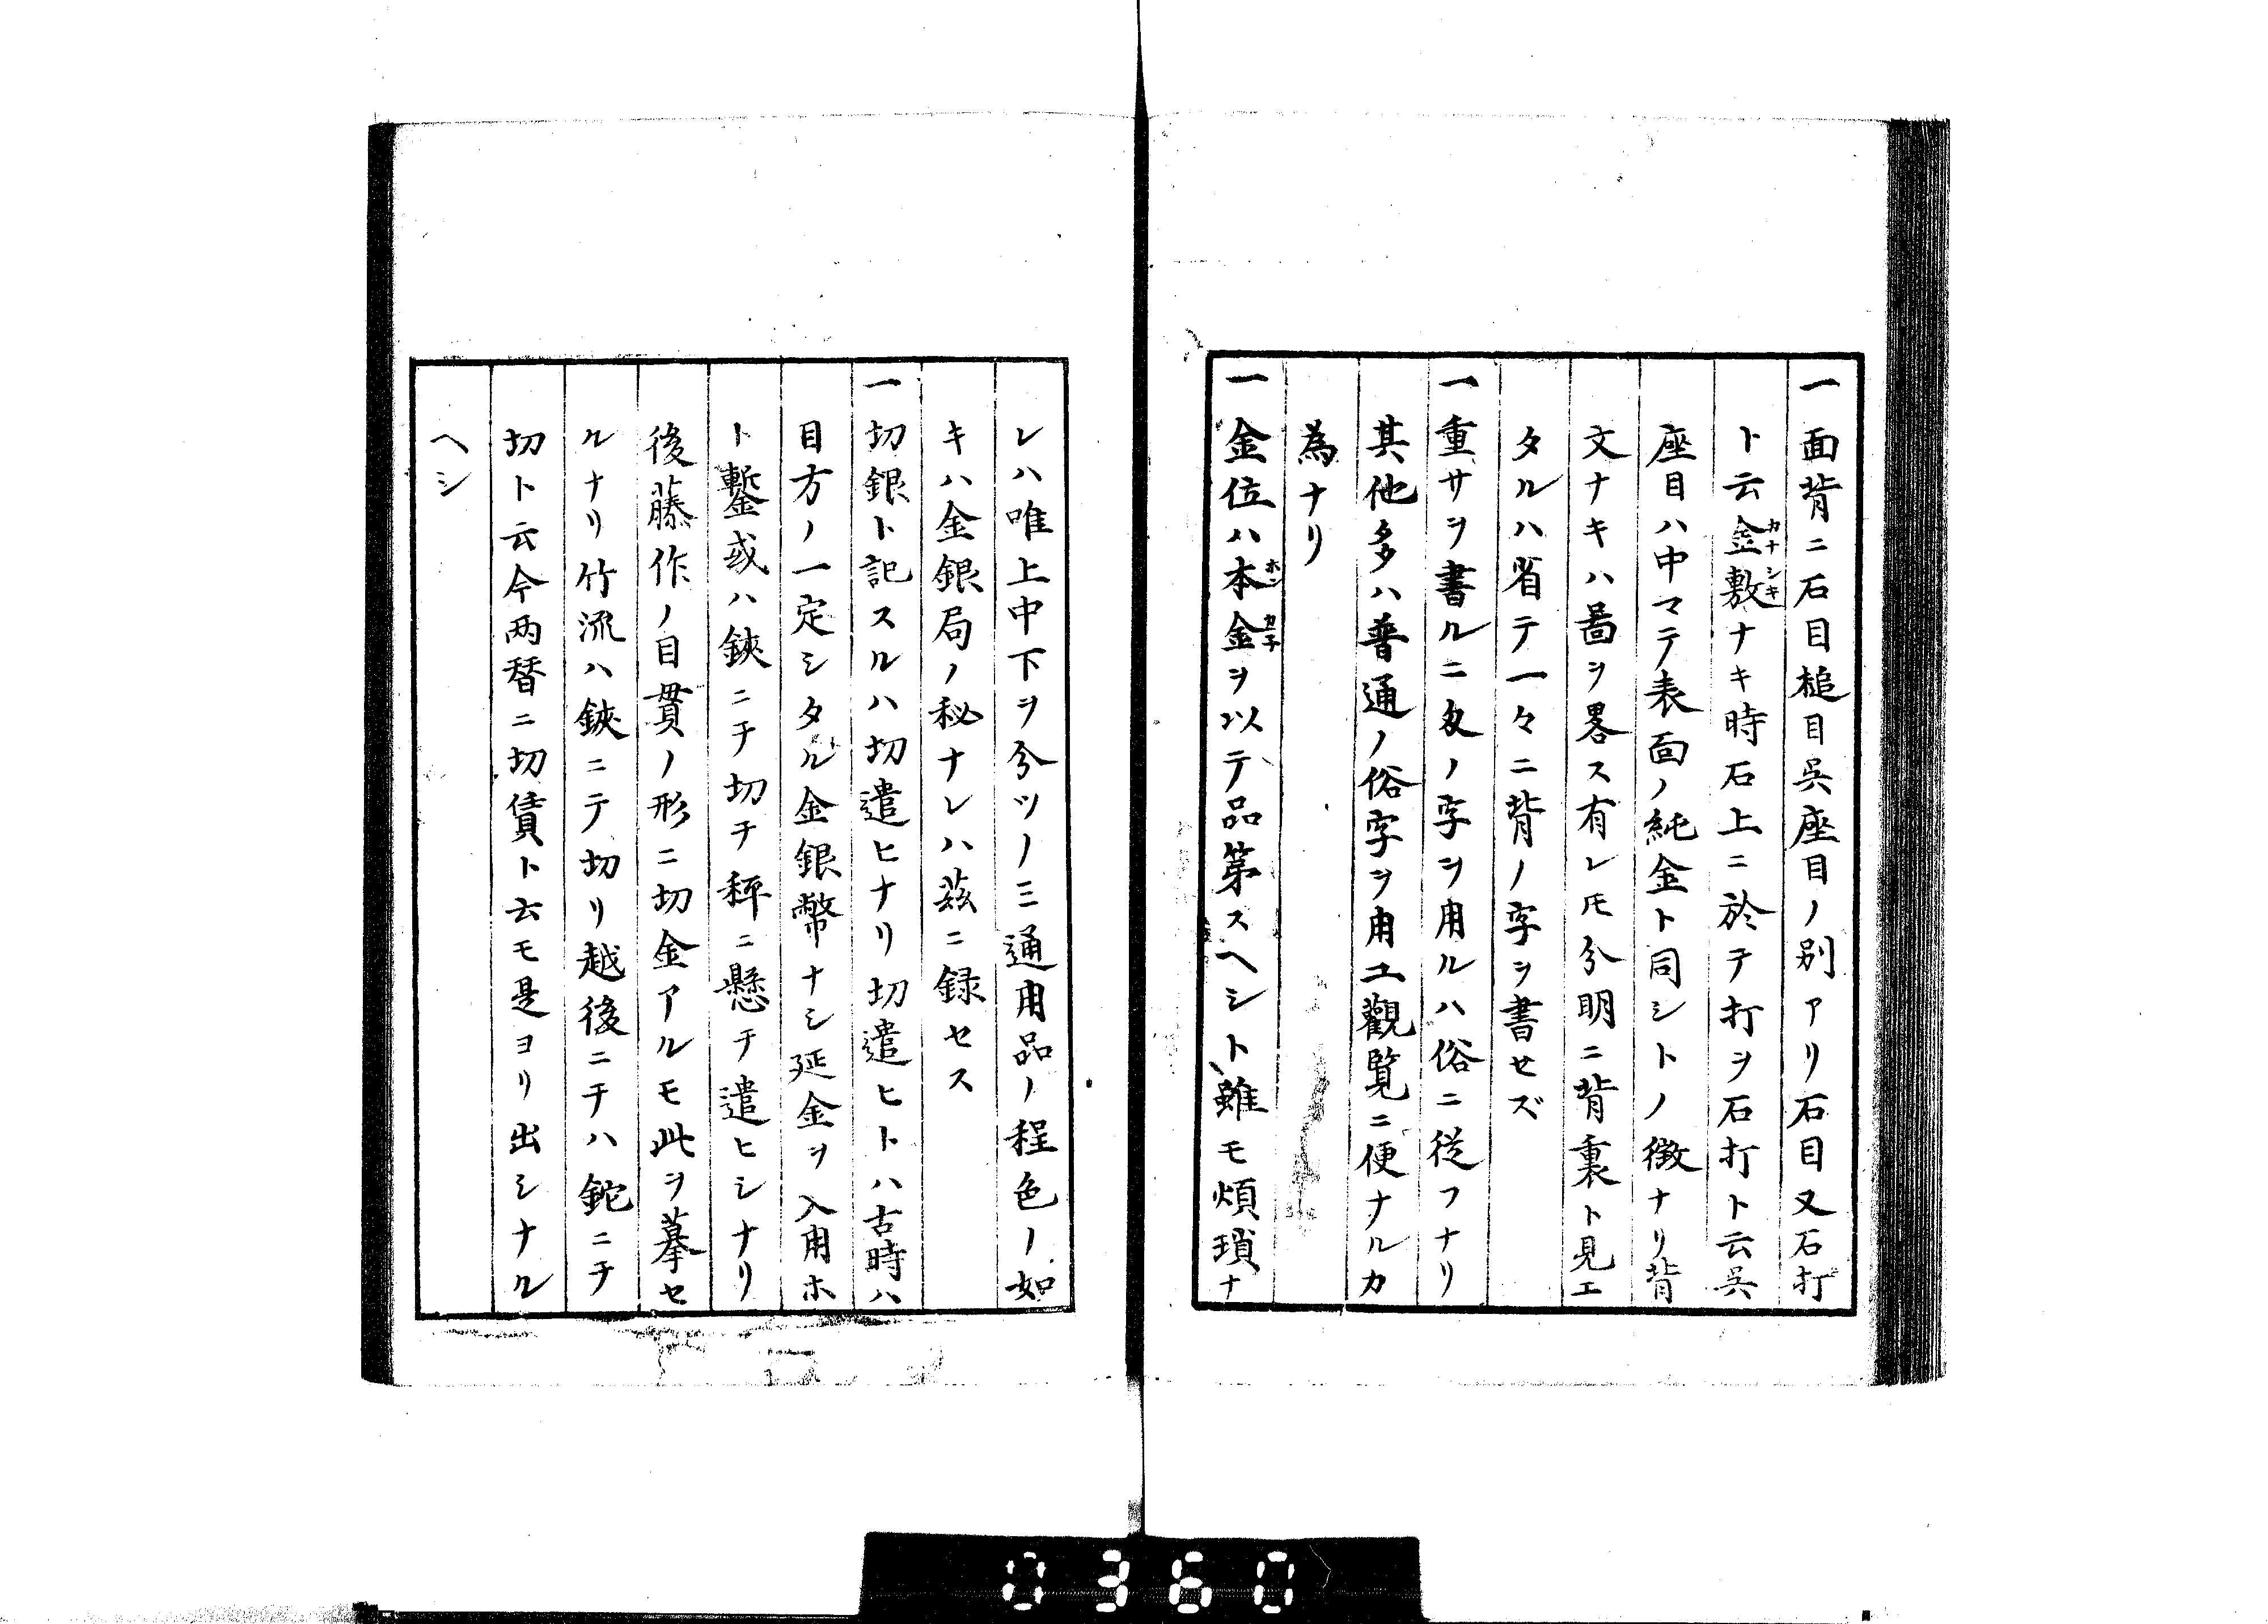 一面背ニ石目槌目呉座目ノ別アリ石目又石打
ト云金敷ナキ時石上ニ於テ打ヲ石打ト云呉
カナシキ
座目ハ中マテ表面ノ純金ト同シトノ徴ナリ背
文ナキハ啚ヲ畧ス有レ𪜈分明ニ背裏ト見エ
タルハ省テ一々ニ背ノ字ヲ書セズ
一重サヲ書ルニ匁ノ字ヲ用ルハ俗ニ従フナリ
其他多ハ普通ノ俗字ヲ用ユ觀覧ニ便ナルカ
為ナリ
一金位ハ本金ヲ以テ品第スヘシト雖モ煩瑣ナ
ホン カネ
レハ唯上中下ヲ分ツノミ通用品ノ程色ノ如
キハ金銀局ノ秘ナレハ茲ニ録セス
一切銀ト記スルハ切遣ヒナリ切遣ヒトハ古時ハ
目方ノ一定シタル金銀幣ナシ延金ヲ入用ホ
ト鏨或ハ鋏ニテ切テ秤ニ懸テ遣ヒシナリ
後藤作ノ目貫ノ形ニ切金アルモ此ヲ摹セ
ルナリ竹流ハ鋏ニテ切リ越後ニテハ鉈ニテ
切ト云今两替ニ切賃ト云モ是ヨリ出シナル
ヘシ
0360